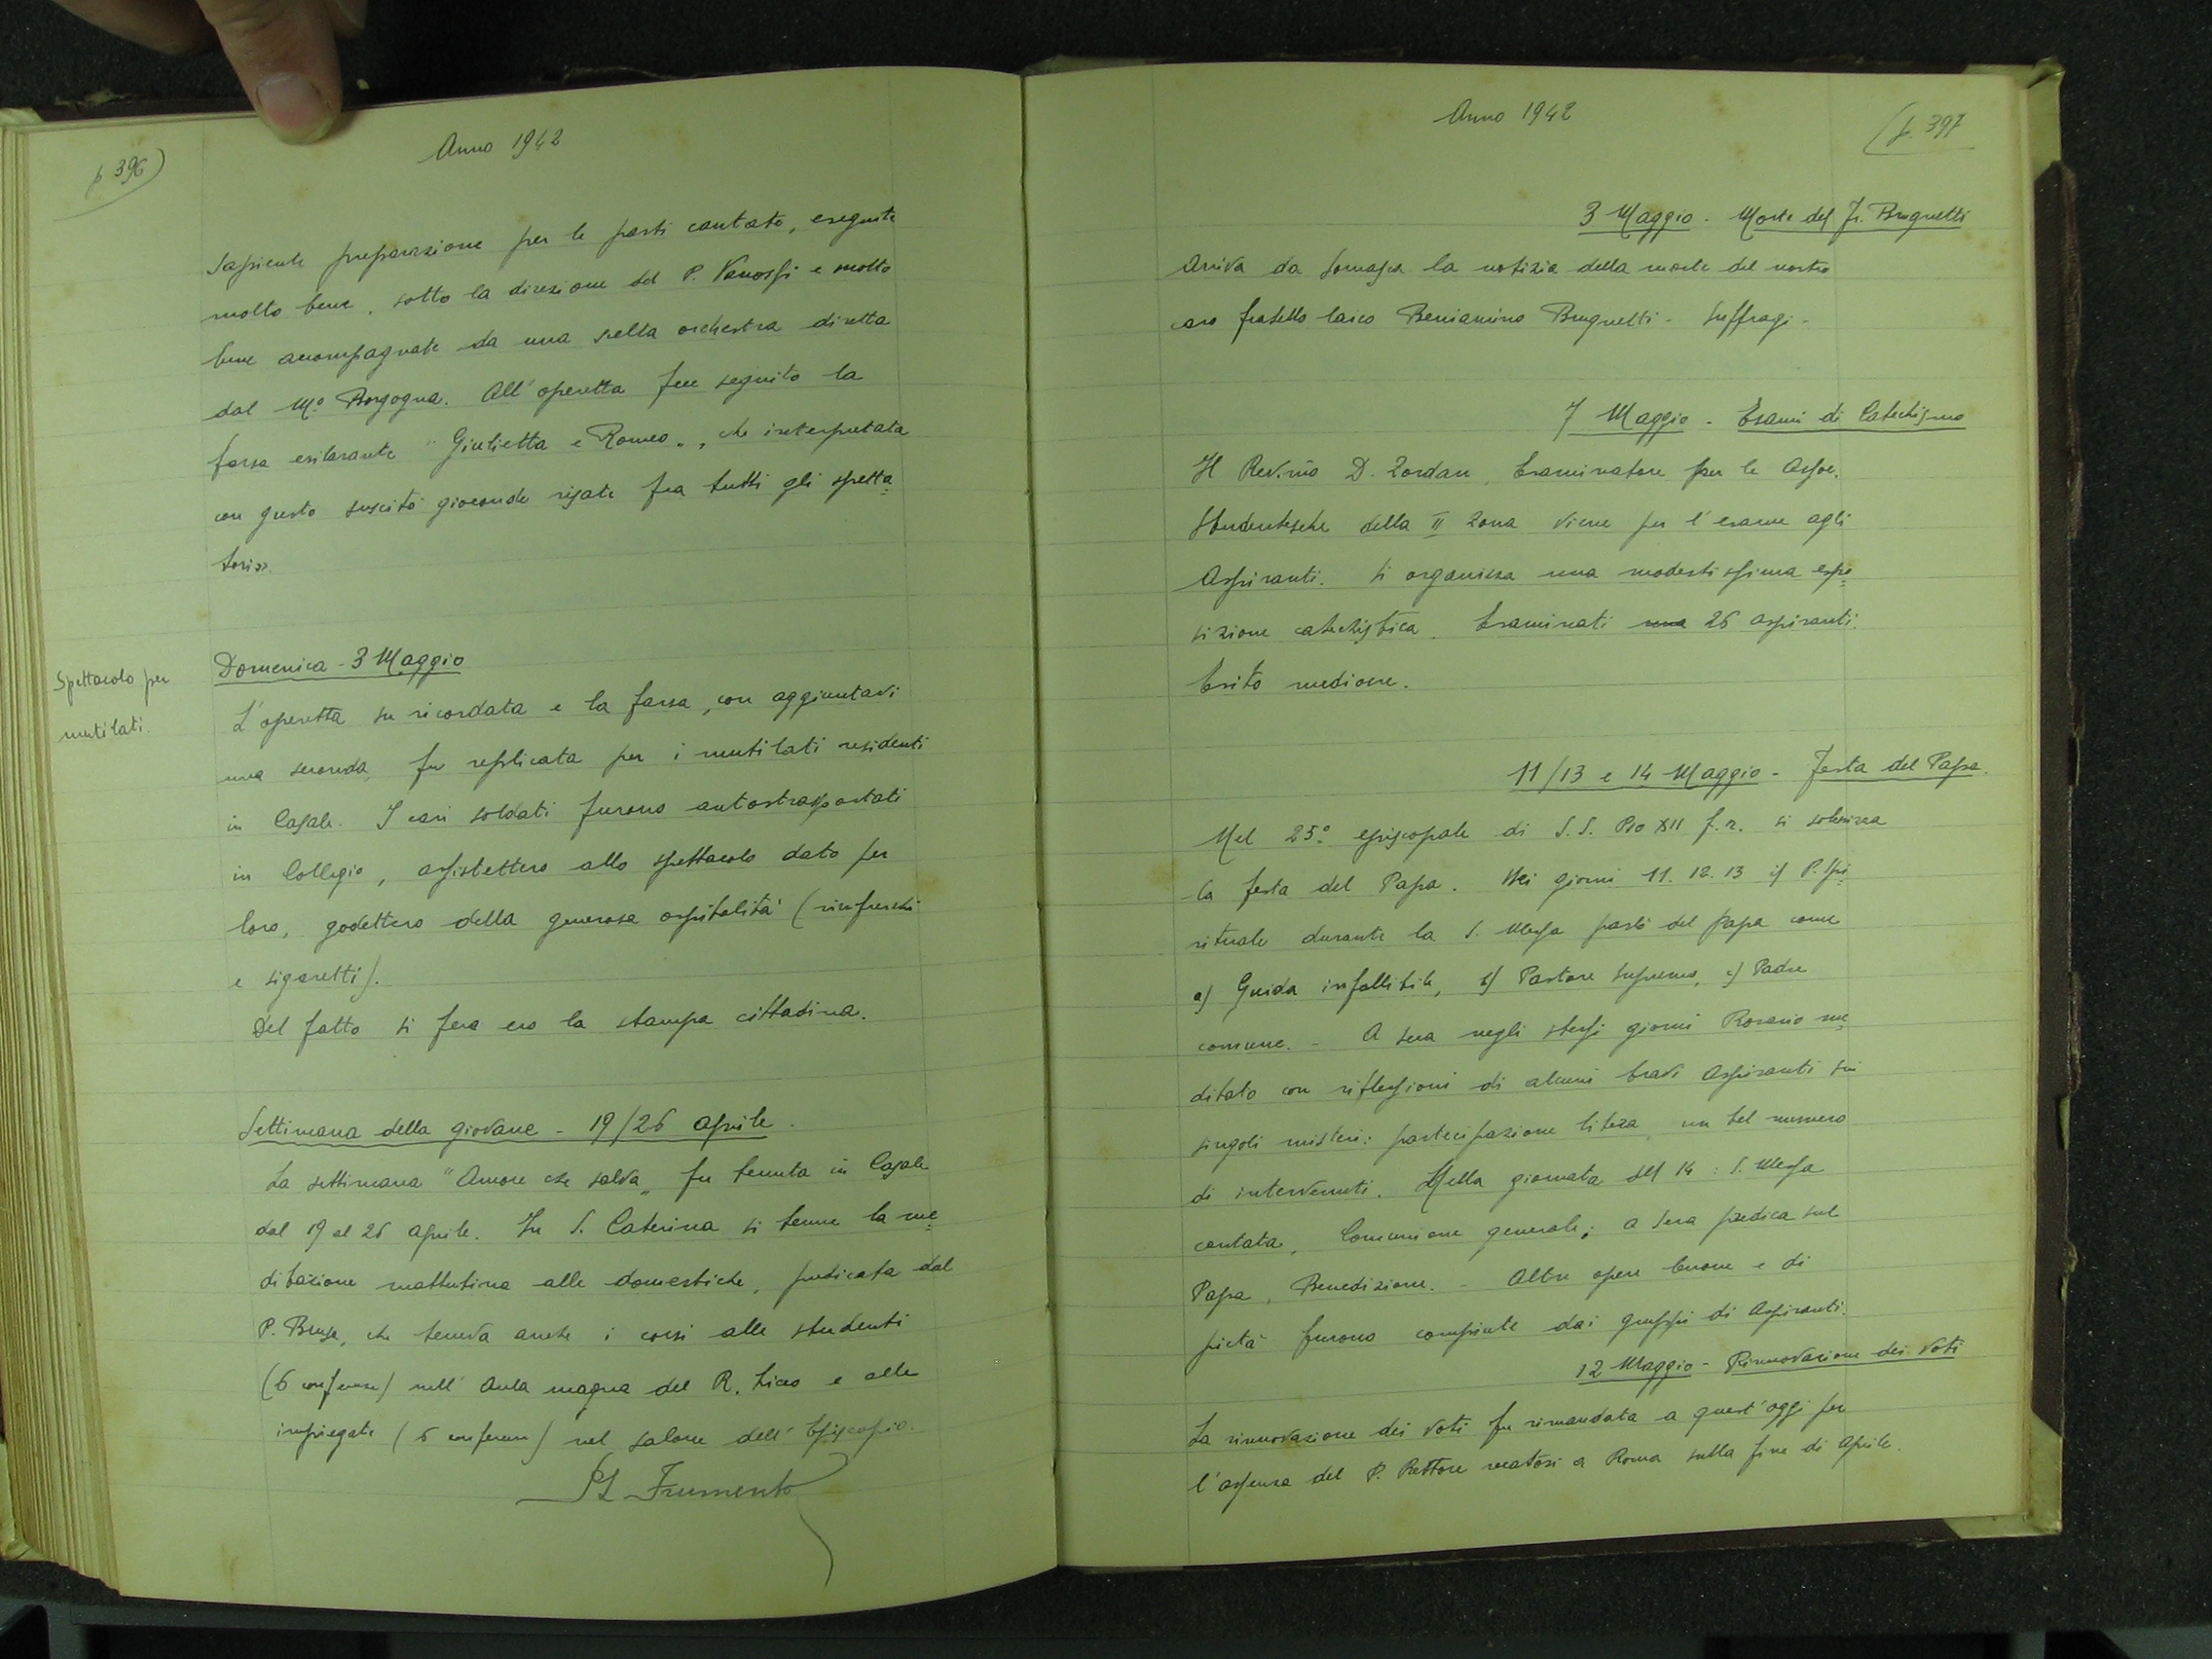 p 396)
Anno 1942
Sapiente preparazione per le parti cantate, eseguite
molto bene, sotto la direzione del P. Vanossi e molto
bene accompagnate da una scelta orchestra diretta
dal M.o Borgogna. All'operetta fece seguito la
farsa esilarante "Giulietta e Romeo", che interpretata
con gusto suscitò gioconde risate fra tutti gli spetta=
tori».
Domenica - 3 Maggio
Spettacolo per
mutilati.
L'operetta su ricordata e la farsa, con aggiuntavi
una seconda, fu replicata per i mutilati residenti
in Casale. I cari soldati furono autotrasportati
in Collegio, assistettero allo spettacolo dato per
loro, godettero della generosa ospitalità (rinfreschi
e sigaretti).
Del fatto si fece eco la stampa cittadina.
Settimana della giovane - 19/26 aprile.
La settimana "Amore che salva" fu tenuta in Casale
dal 19 al 26 aprile. In S. Caterina si tenne la me=
ditazione mattutina alle domestiche, predicata dal
P. Brusa, che teneva anche i corsi alle studenti
(6 conferenze) nell'Aula magna del R. Liceo e alle
impiegate (6 conferenze) nel salone dell'Episcopio.
PL Frumento
Anno 1942
(p. 397
3 Maggio - Morte del Fr. Brugnetti
Arriva da Somasca la notizia della morte del nostro
caro fratello laico Beniamino Brugnetti - Suffragi -
7 Maggio - Esami di Catechismo
Il Rev.mo D. Zordan, Esaminatore per le Assoc.
Studentesche della II Zona viene per l'esame agli
Aspiranti. Si organizza una modestissima espo=
sizione catechistica. Esaminati una 26 aspiranti.
Esito mediocre.
11/13 e 14 Maggio - Festa del Papa.
Nel 25o episcopale di S.S. Pio XII f.r. si solennizza
la festa del Papa. Nei giorni 11. 12. 13 il P. Spi=
rituale durante la S. Messa parlò del Papa come
a) Guida infallibile, b) Pastore Supremo, c) Padre
comune. - A sera negli stessi giorni Rosario me=
ditato con riflessioni di alcuni bravi Aspiranti sui
singoli misteri: partecipazione libera, un bel numero
di intervenuti. Nella giornata del 14: S. Messa
cantata, Comunione generale; a sera predica sul
Papa, Benedizione. - Altre opere buone e di
pietà furono compiute dai gruppi di Aspiranti.
12 Maggio - Rinnovazione dei Voti
La rinnovazione dei voti fu rimandata a quest'oggi per
l'assenza del P. Rettore recatosi a Roma sulla fine di Aprile.